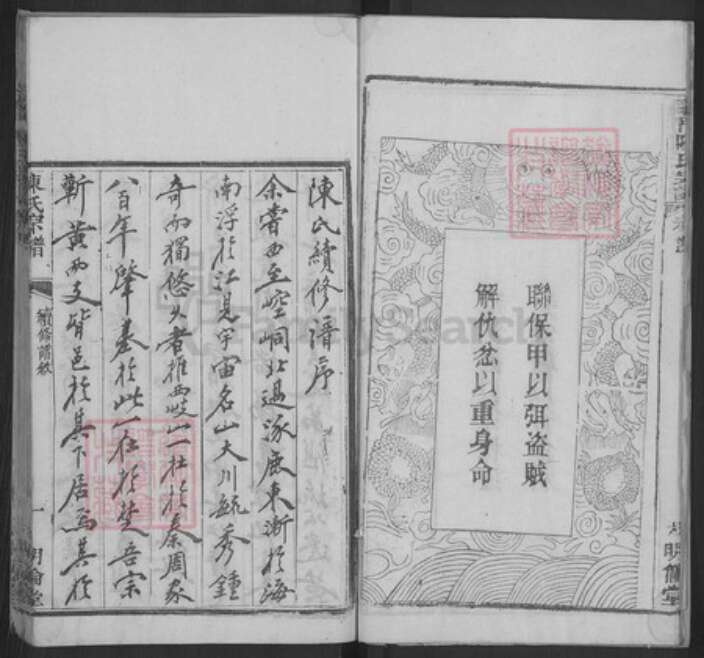 聯保甲以弭盜賊
解仇忿以重身命
明倫堂
陳氏續修譜序
余嘗西至崆峒北過涿鹿東漸於海
南浮於江見宇宙名山大川毓秀鍾
奇而獨悠久者推西岐山一在於秦周家
八百年肇基於此一在於楚吾宗
蘄黃兩支皆邑於其下居焉其於
陳氏宗譜
續修譜敘
一
明倫堂
FamilySearch